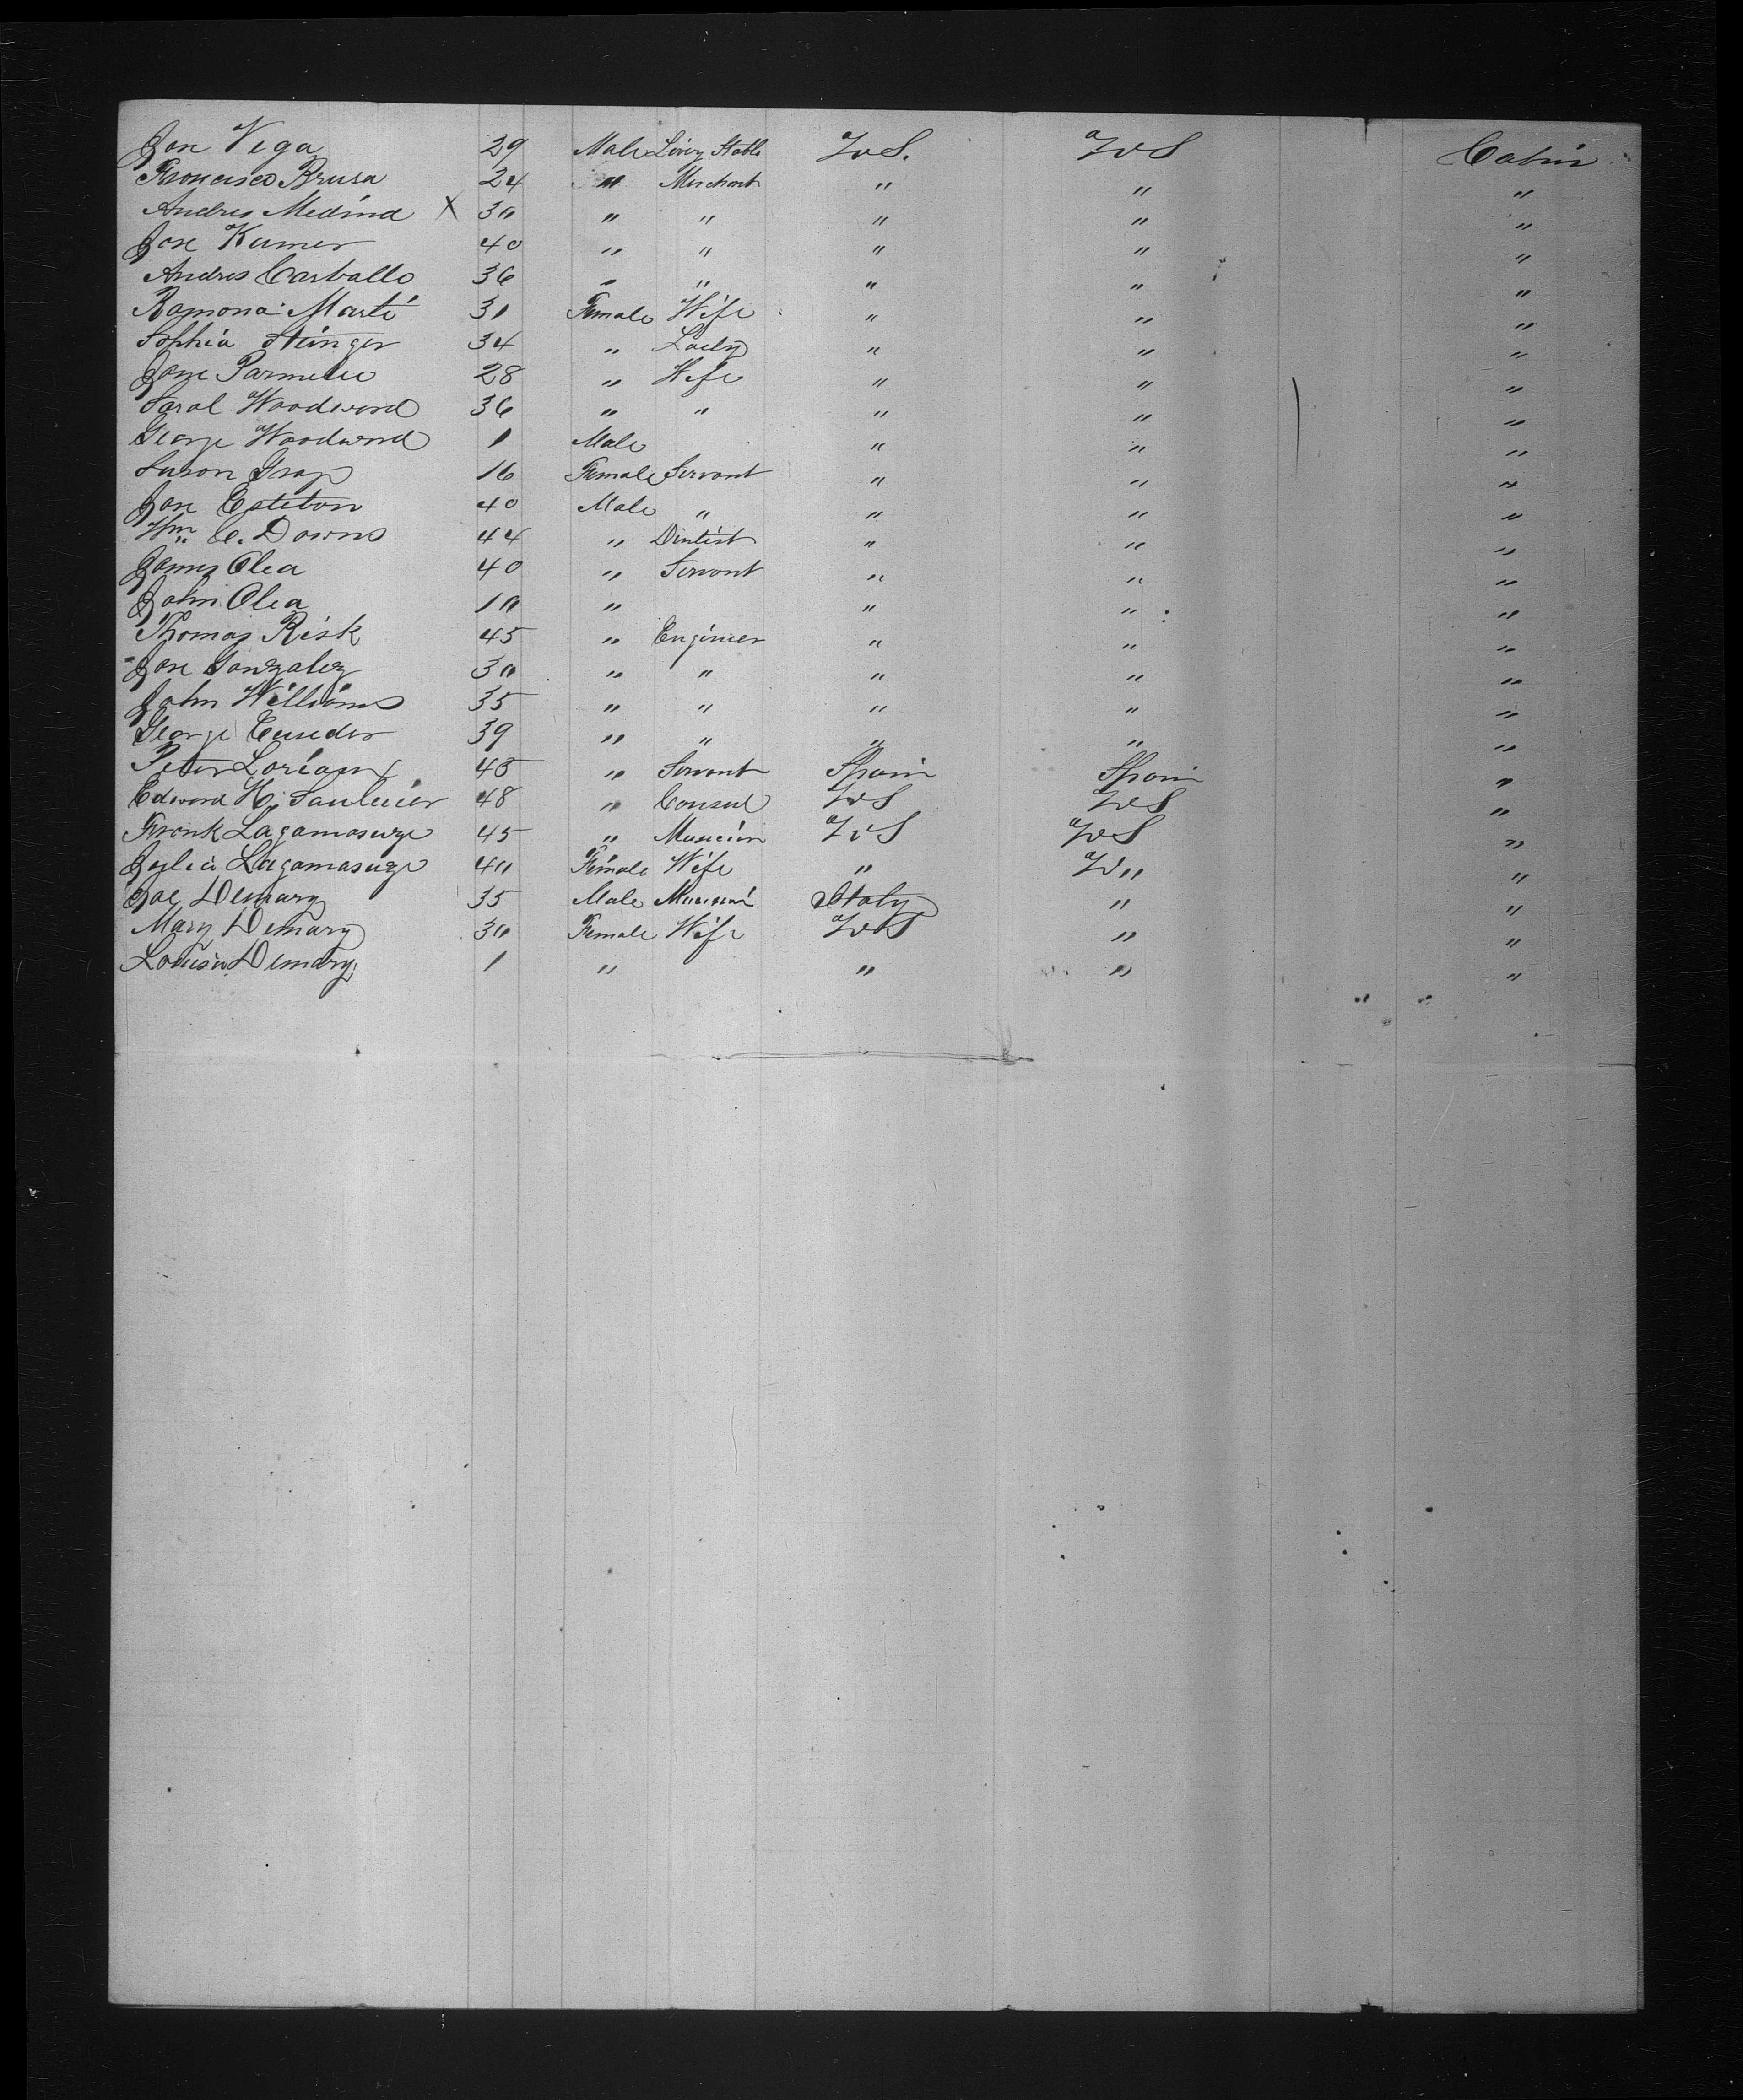 Jose Vega 29 Male Livery Stable U.S. U S Cabin
Francisco Brusa 24 " Merchant " " "
Andres Medina X 30 " " " " "
Jose Kumer 40 " " " " "
Andres Carballo 36 " " " " "
Ramona Marti 31 Female Wife " " "
Sophia Stinger 34 " Lady " " "
Jane Parmelee 28 " Wife " " "
Sarah Woodward 36 " " " " "
George Woodward 1 Male " " "
Susan Gray 16 Female Servant " " "
Jose Esteban 40 Male " " " "
Wm C. Downs 44 " Dentist " " "
James Olea 40 " Servant " " "
John Olea 10 " " " "
Thomas Risk 45 " Engineer " " "
Jose Gonzalez 30 " " " " "
John Williams 35 " " " " "
George 39 " " " " "
Peter 45 " Servant Spain Spain "
Edward H. Saulnier 48 " Consul U S U S "
Frank Lagomasuge 45 " Musician U S U S "
Julia Lagomasuge 40 Female Wife " U " "
Joe Demary 35 Male Italy " "
Mary Demary 30 Female Wife U S " "
Louisa Demary 1 " " " "